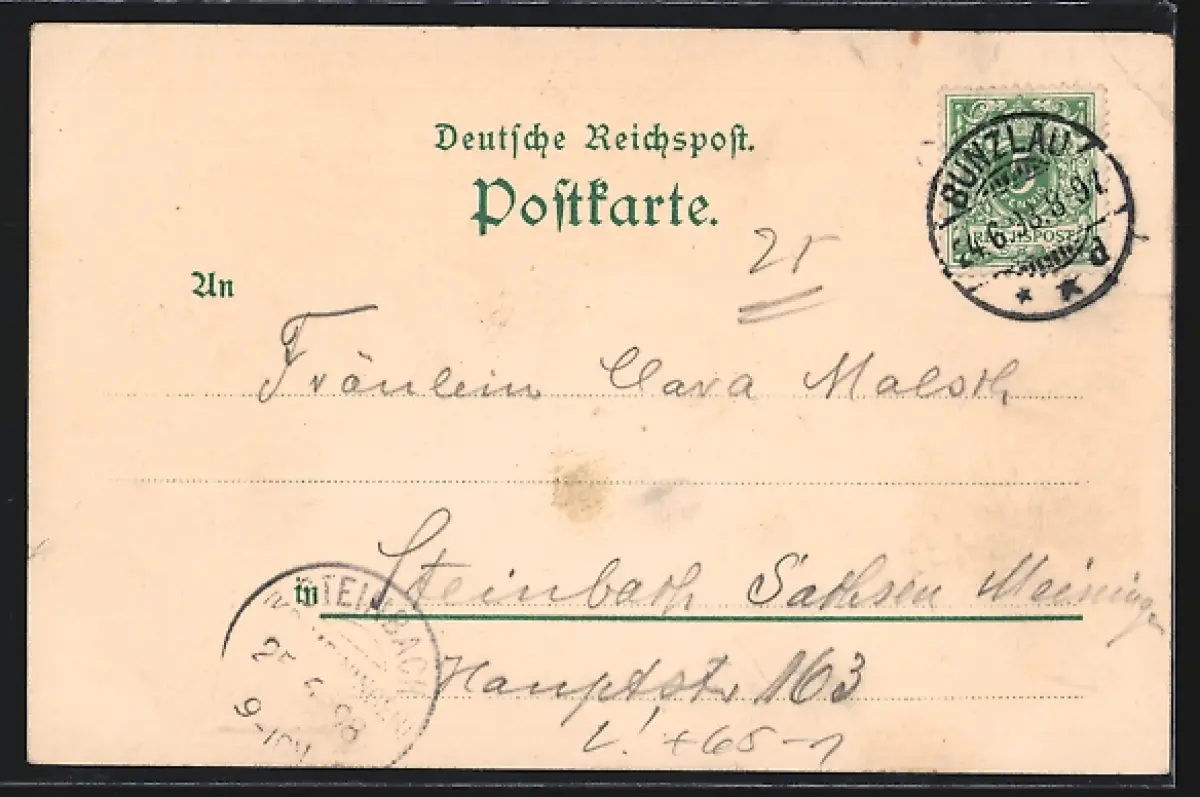 Deutsche Reichspost.
Postkarte.
BUNZLAU
24.6.98.8-9V.
d
REICHSPOST
25
An
Fräulein Clara Malsch
in Steinbach Sachsen Meiningen
STEINBACH
25
98
9-10V
Hauptstr 163
L! +65-1